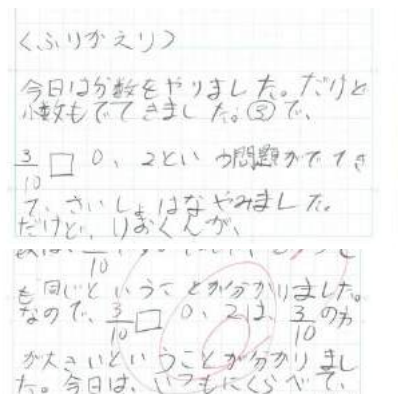 〈ふりかえり〉
今日は分数をやりました。だけど
小数もでてきました。③で、
3/10 □ 0、2という問題がでてき
て、さいしょはなやみました。
だけど、りおくんが、
3/10
も同じということが分かりました。
なので、3/10 □ 0、2は、3/10の方
が大きいということが分かりまし
た。今日は、いつもにくらべて、